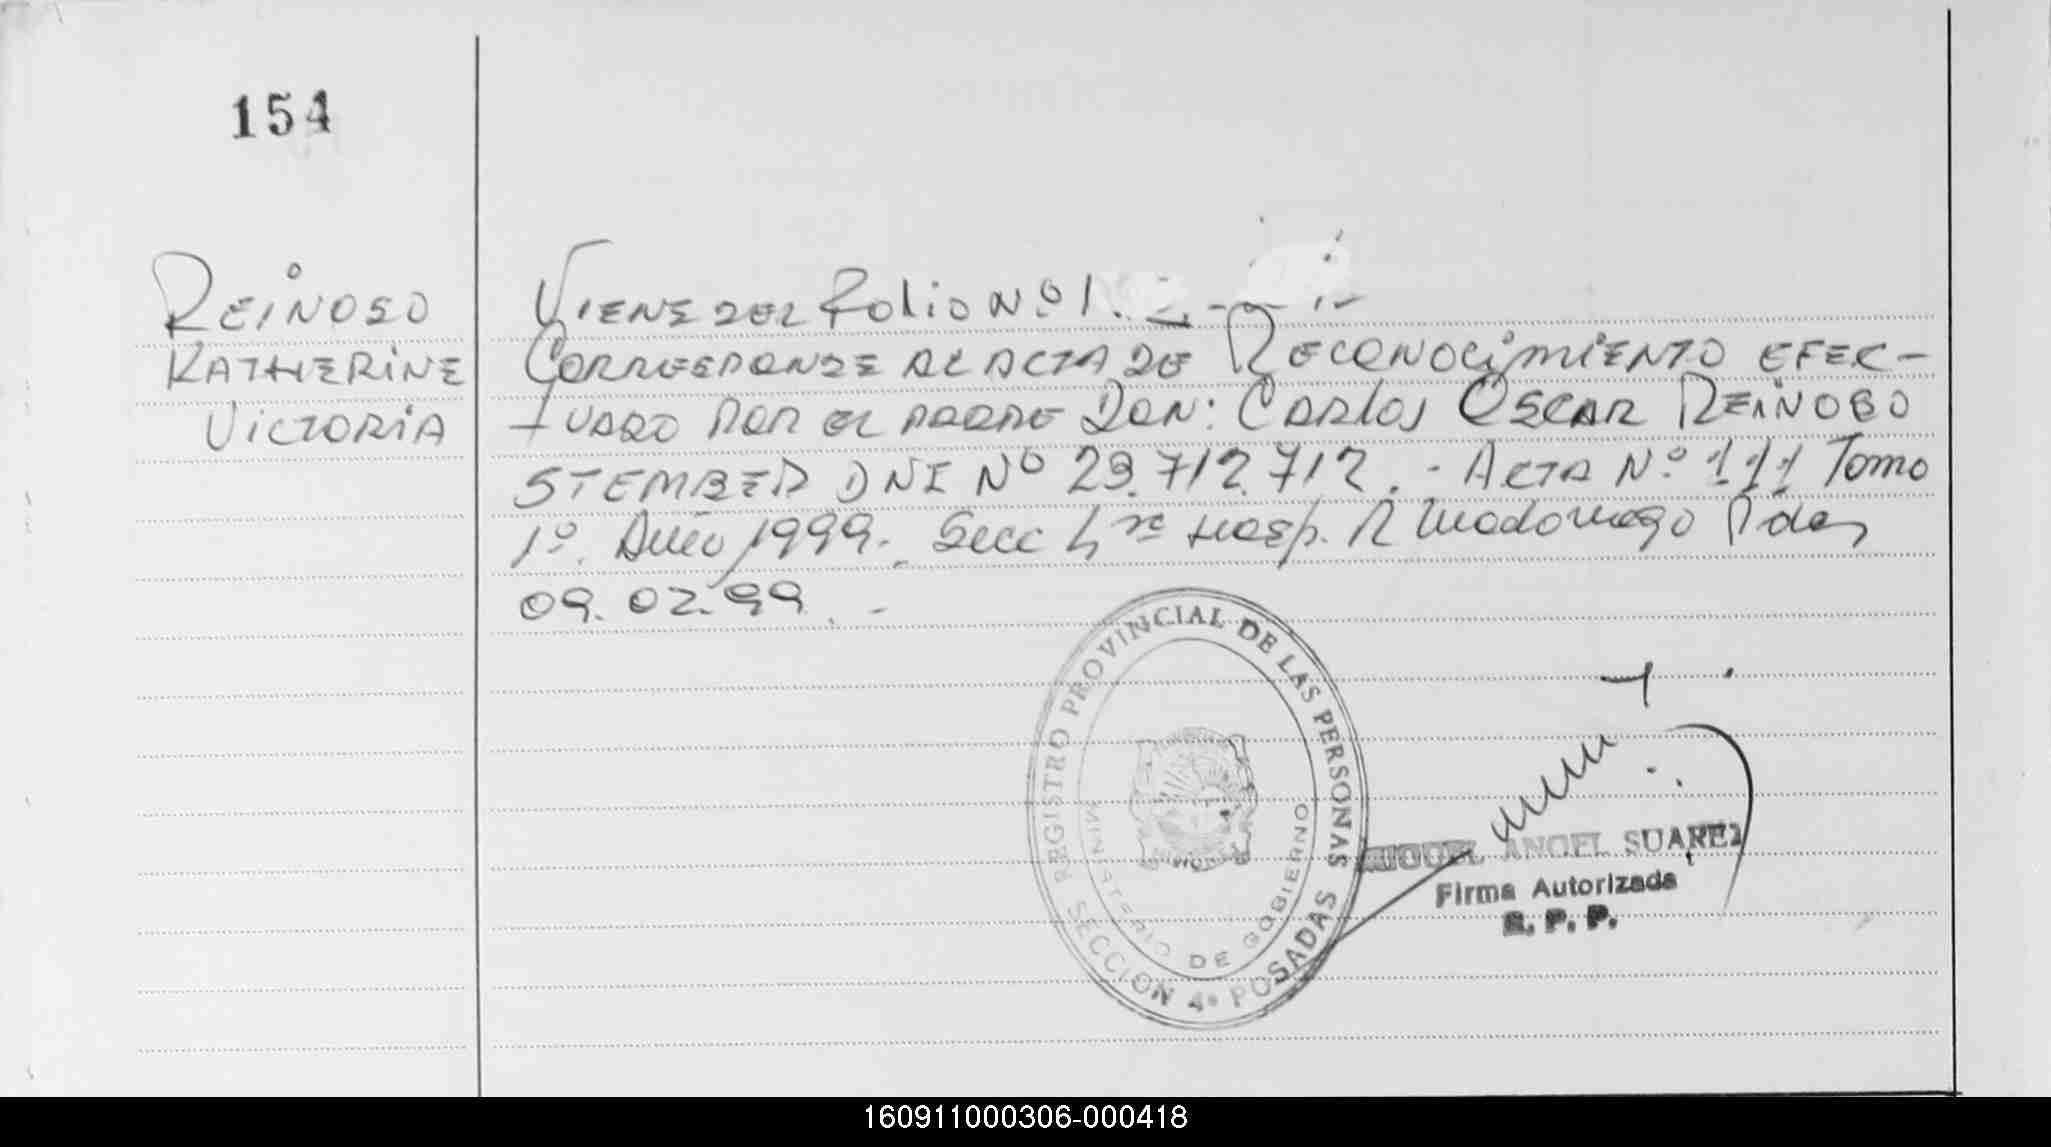 154
REINOSO
KATHERINE
VICTORIA
VIENE DEL Folio Nº 1.
CORRESPONDE AL ACTA DE RECONOCIMIENTO EFEC-
TUADO POR EL PADRE DON: CARLOS OSCAR REINOSO
STEMBER DNI Nº 23.712.712.- ACTA Nº 111 Tomo
1º. Año 1999.- Secc 4ª Hosp. R Madariaga Pdas
09.02.99.-
REGISTRO PROVINCIAL DE LAS PERSONAS
MINISTERIO DE GOBIERNO
SECCION 4ª POSADAS
MIGUEL ANGEL SUAREZ
Firma Autorizada
R. P. P.
160911000306-000418